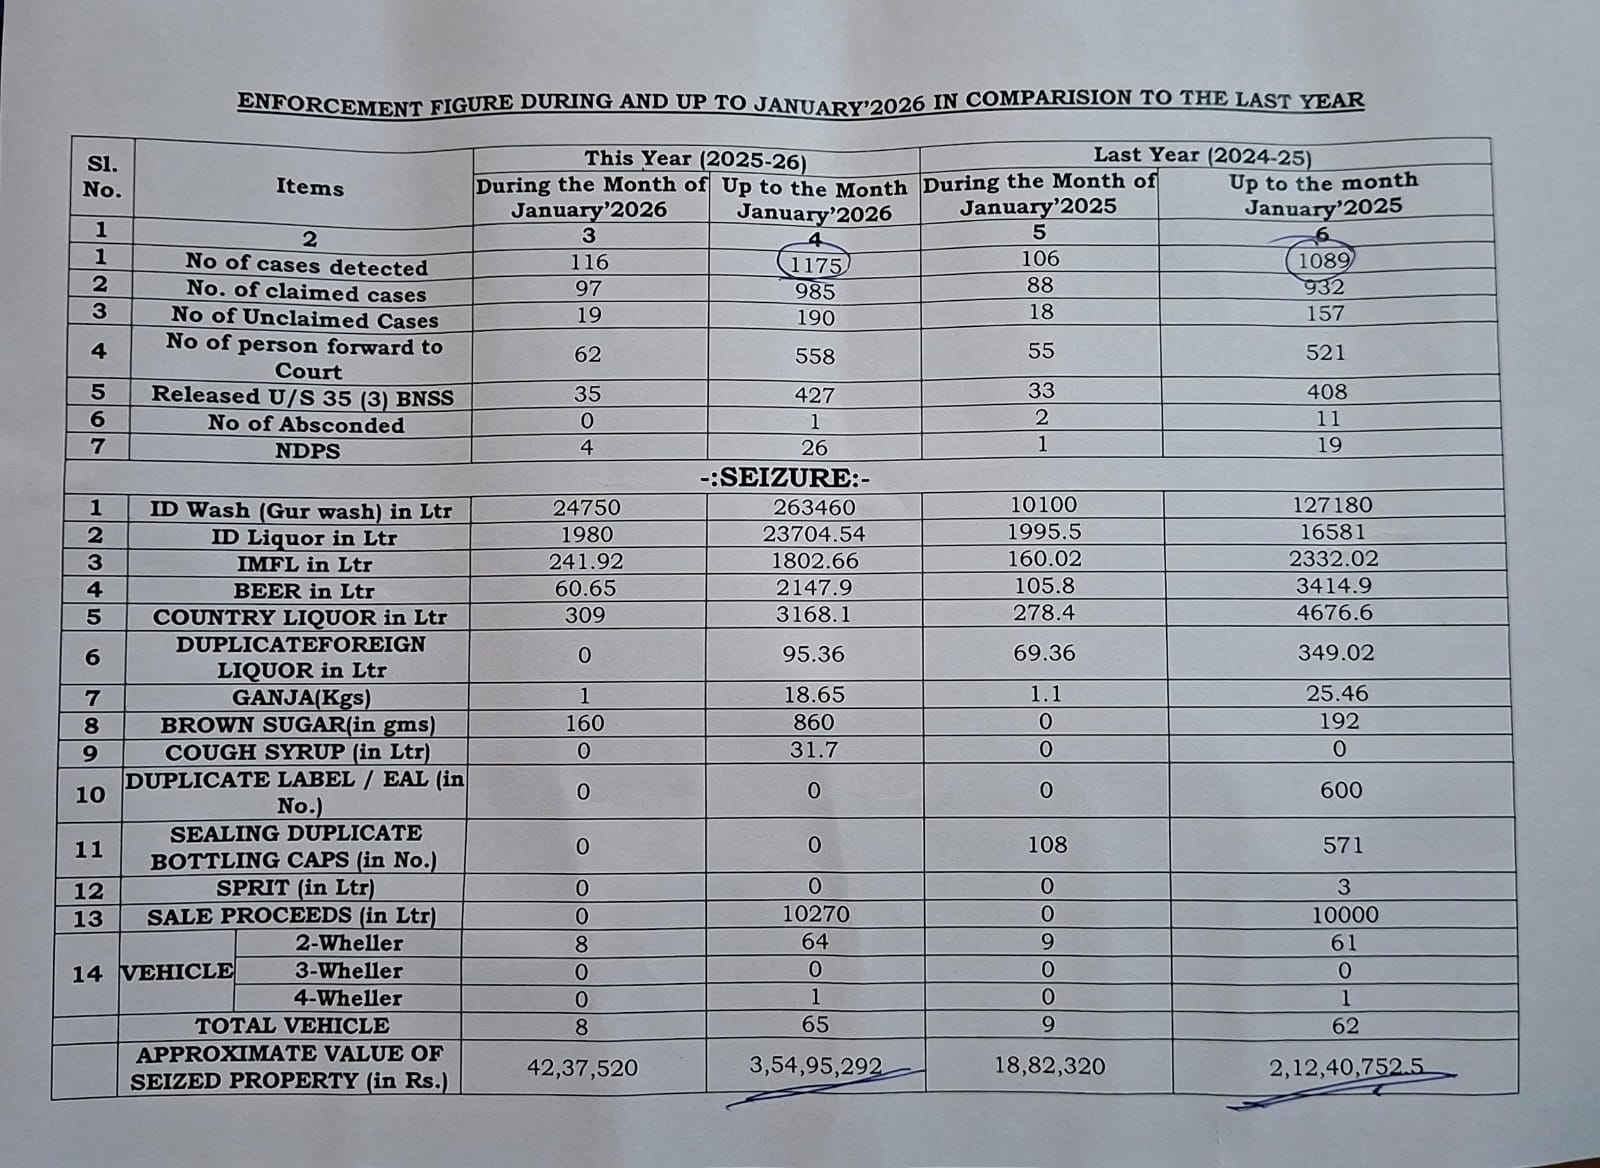 ENFORCEMENT FIGURE DURING AND UP TO JANUARY'2026 IN COMPARISION TO THE LAST YEAR
Sl. No. Items This Year (2025-26) Last Year (2024-25)
During the Month of January'2026 Up to the Month January'2026 During the Month of January'2025 Up to the month January'2025
1 2 3 4 5 6
1 No of cases detected 116 1175 106 1089
2 No. of claimed cases 97 985 88 932
3 No of Unclaimed Cases 19 190 18 157
4 No of person forward to Court 62 558 55 521
5 Released U/S 35 (3) BNSS 35 427 33 408
6 No of Absconded 0 1 2 11
7 NDPS 4 26 1 19
-:SEIZURE:-
1 ID Wash (Gur wash) in Ltr 24750 263460 10100 127180
2 ID Liquor in Ltr 1980 23704.54 1995.5 16581
3 IMFL in Ltr 241.92 1802.66 160.02 2332.02
4 BEER in Ltr 60.65 2147.9 105.8 3414.9
5 COUNTRY LIQUOR in Ltr 309 3168.1 278.4 4676.6
6 DUPLICATEFOREIGN LIQUOR in Ltr 0 95.36 69.36 349.02
7 GANJA(Kgs) 1 18.65 1.1 25.46
8 BROWN SUGAR(in gms) 160 860 0 192
9 COUGH SYRUP (in Ltr) 0 31.7 0 0
10 DUPLICATE LABEL / EAL (in No.) 0 0 0 600
11 SEALING DUPLICATE BOTTLING CAPS (in No.) 0 0 108 571
12 SPRIT (in Ltr) 0 0 0 3
13 SALE PROCEEDS (in Ltr) 0 10270 0 10000
14 VEHICLE 2-Wheller 8 64 9 61
3-Wheller 0 0 0 0
4-Wheller 0 1 0 1
TOTAL VEHICLE 8 65 9 62
APPROXIMATE VALUE OF SEIZED PROPERTY (in Rs.) 42,37,520 3,54,95,292 18,82,320 2,12,40,752.5